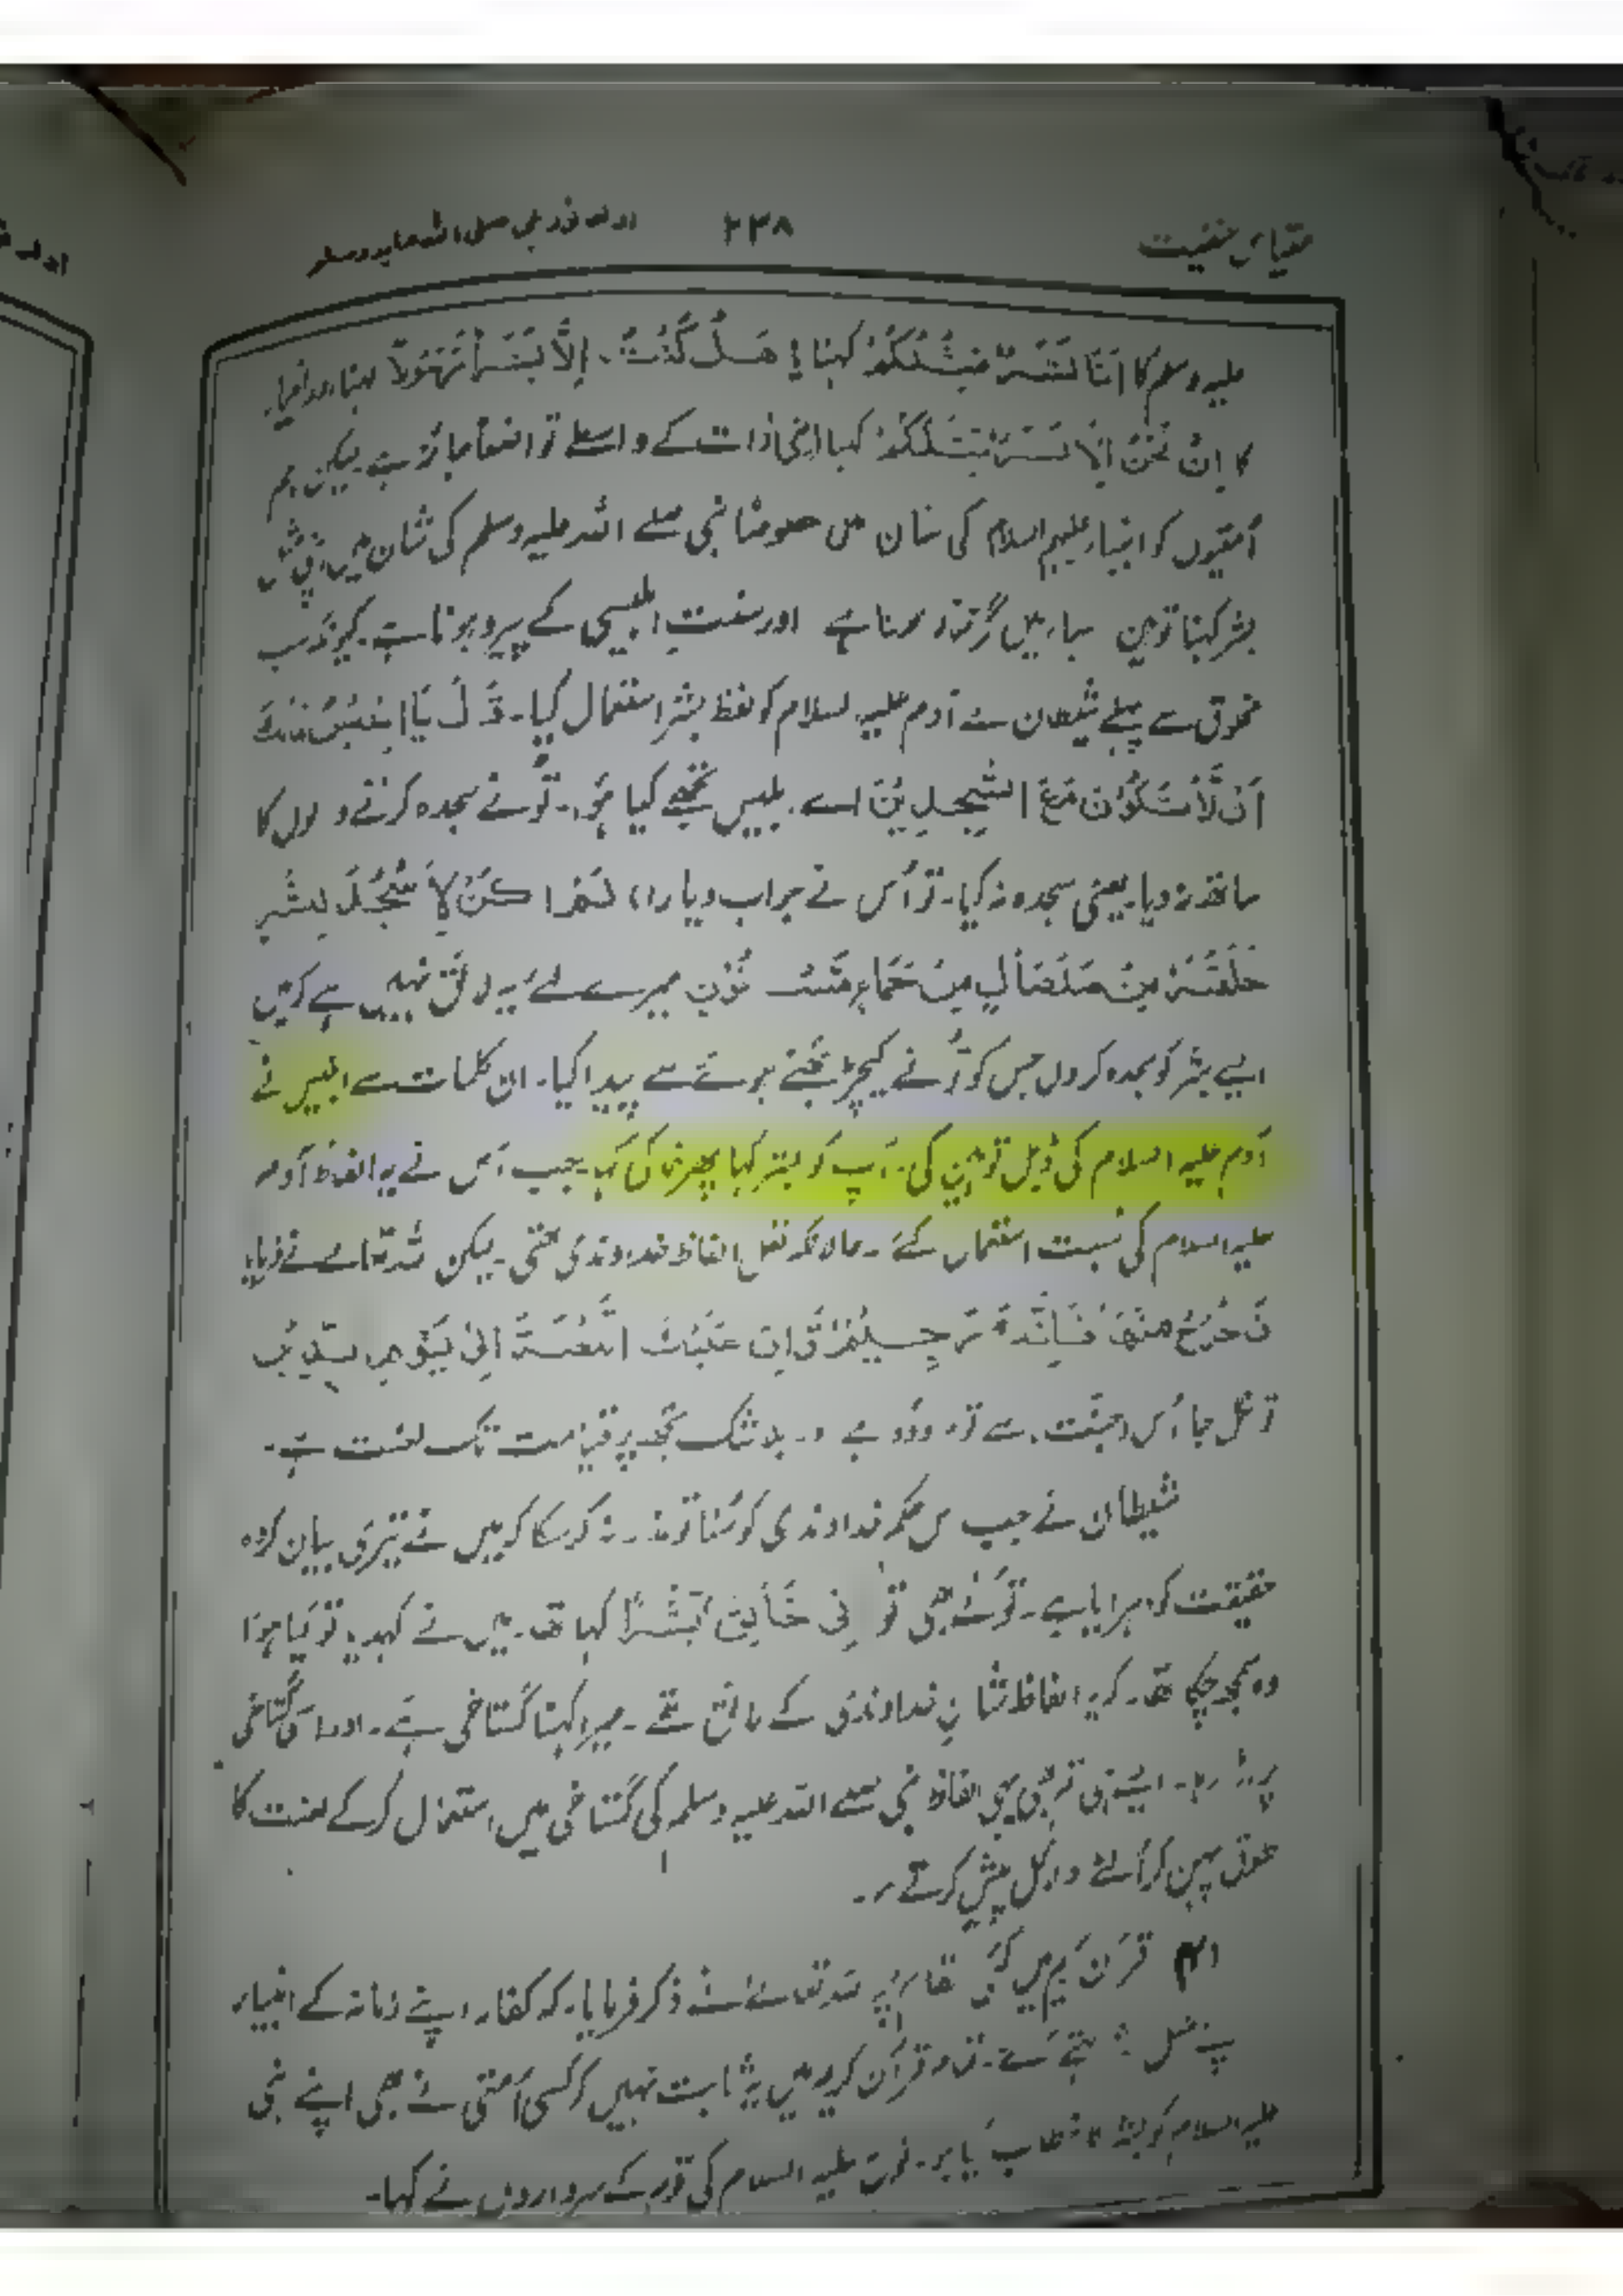 مقیاس حنفیت ۲۳۸ نور نبی صلی اللہ علیہ وسلم
علیہ وسلم کا اَنَا بَشَرٌ مِثْلُكُمْ کہنا یا هَلْ كُنْتُ اِلَّا بَشَرًا رَسُوْلًا کہنا
کا اِنْ نَحْنُ اِلَّا بَشَرٌ مِثْلُكُمْ کہنا اپنی ذات کے واسطے تو جائز ہے لیکن ہم
اُمتیوں کو انبیاء علیہم السلام کی شان میں خصوصاً نبی صلے اللہ علیہ وسلم کی شان میں اپنی مثل
بشر کہنا توہین ہے اور سنتِ ابلیسی کے پیرو ہونا ہے۔ کیونکہ سب
مخلوق سے پہلے شیطان نے آدم علیہ السلام کو لفظ بشر استعمال کیا۔ قَالَ يَا اِبْلِيْسُ مَالَكَ
اَنْ لَّا تَكُوْنَ مَعَ السّٰجِدِيْنَ اے ابلیس تجھے کیا ہوا۔ تُو نے سجدہ کرنے والوں کا
ساتھ نہ دیا یعنی سجدہ نہ کیا۔ تو اُس نے جواب دیا لَمْ اَكُنْ لِاَسْجُدَ لِبَشَرٍ
خَلَقْتَهٗ مِنْ صَلْصَالٍ مِنْ حَمَاٍ مَسْنُوْنٍ میرے لئے یہ لائق نہیں ہے کہ میں
ایسے بشر کو سجدہ کروں جس کو تُو نے کیچڑ بجنے ہوئے سے پیدا کیا۔ ان کلمات سے ابلیس نے
آدم علیہ السلام کی ڈبل توہین کی۔ آپ کو بشر کہا پھر خاکی کہا۔ جب اُس نے یہ الفاظ آدم
علیہ السلام کی نسبت استعمال کئے۔ حالانکہ نقل الفاظ خداوندی تھی۔ لیکن اللہ تعالےٰ نے فرمایا
فَاخْرُجْ مِنْهَا فَاِنَّكَ رَجِيْمٌ وَّاِنَّ عَلَيْكَ اللَّعْنَةَ اِلٰى يَوْمِ الدِّيْنِ
تو نکل جا اُس (جنت) سے تو مردود ہے اور بلا شک تجھ پر قیامت تک لعنت ہے۔
شیطان نے جب اس حکم خداوندی کو سُنا تو عذر نہ کر سکا کہ میں نے تیری بیان کردہ
حقیقت کو دہرایا ہے۔ تُو نے بھی تو اِنِّیْ خَالِقٌ بَشَرًا کہا تھا۔ میں نے کہہ دیا تو کیا ہوا
وہ سمجھ چکا تھا۔ کہ یہ الفاظ شانِ خداوندی کے لائق تھے۔ میرا کہنا گستاخی ہے۔ اور اسی گستاخی
پر اڑا رہا۔ ایسے ہی تم بھی یہی الفاظ نبی صلے اللہ علیہ وسلم کی گستاخی میں استعمال کرکے لعنت کا
طوق پہن کر اُلٹے دلائل پیش کرتے ہو۔
قرآن کریم میں کئی مقام پر اللہ تعالےٰ نے ذکر فرمایا۔ کہ کفار اپنے زمانہ کے انبیاء
اپنے مثل بشر کہتے تھے۔ اور قرآن کریم میں یہ ثابت نہیں کہ کسی اُمتی نے بھی اپنے نبی
علیہ السلام کو بشر کا خطاب کیا ہو۔ نوح علیہ السلام کی قوم کے سرداروں نے کہا۔